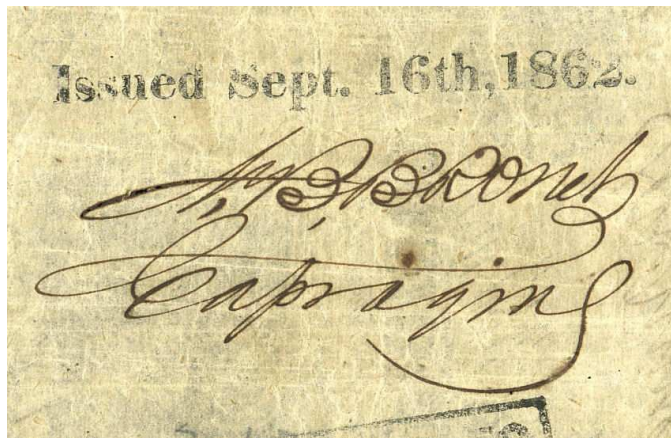 Issued Sept. 16th, 1862.
A. B. Bronet
Capr a q m